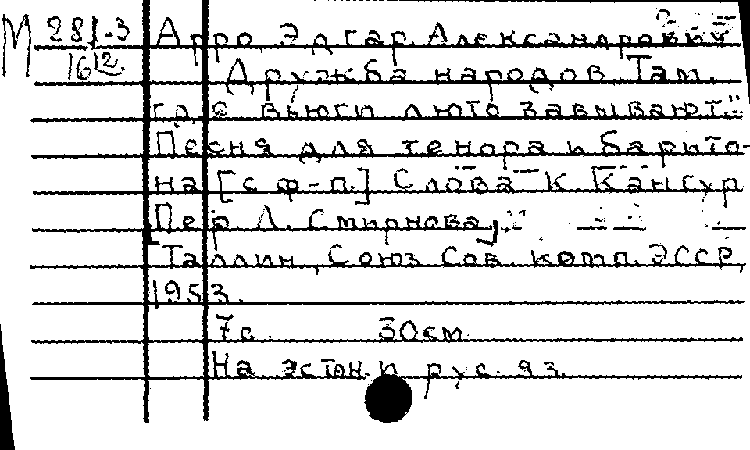 М 281-3 Арро, Эдгар Александрович
1612. Дружба народов. "Там,
где вьюги люто завывают..."
Песня для тенора и барито-
на [с ф-п.] Слова К. Кангур
Пер. Л. Смирнова.
[Таллин, Союз сов. комп. ЭССР,
1953.
7 с. 30 см.
На эстон. и рус. яз.